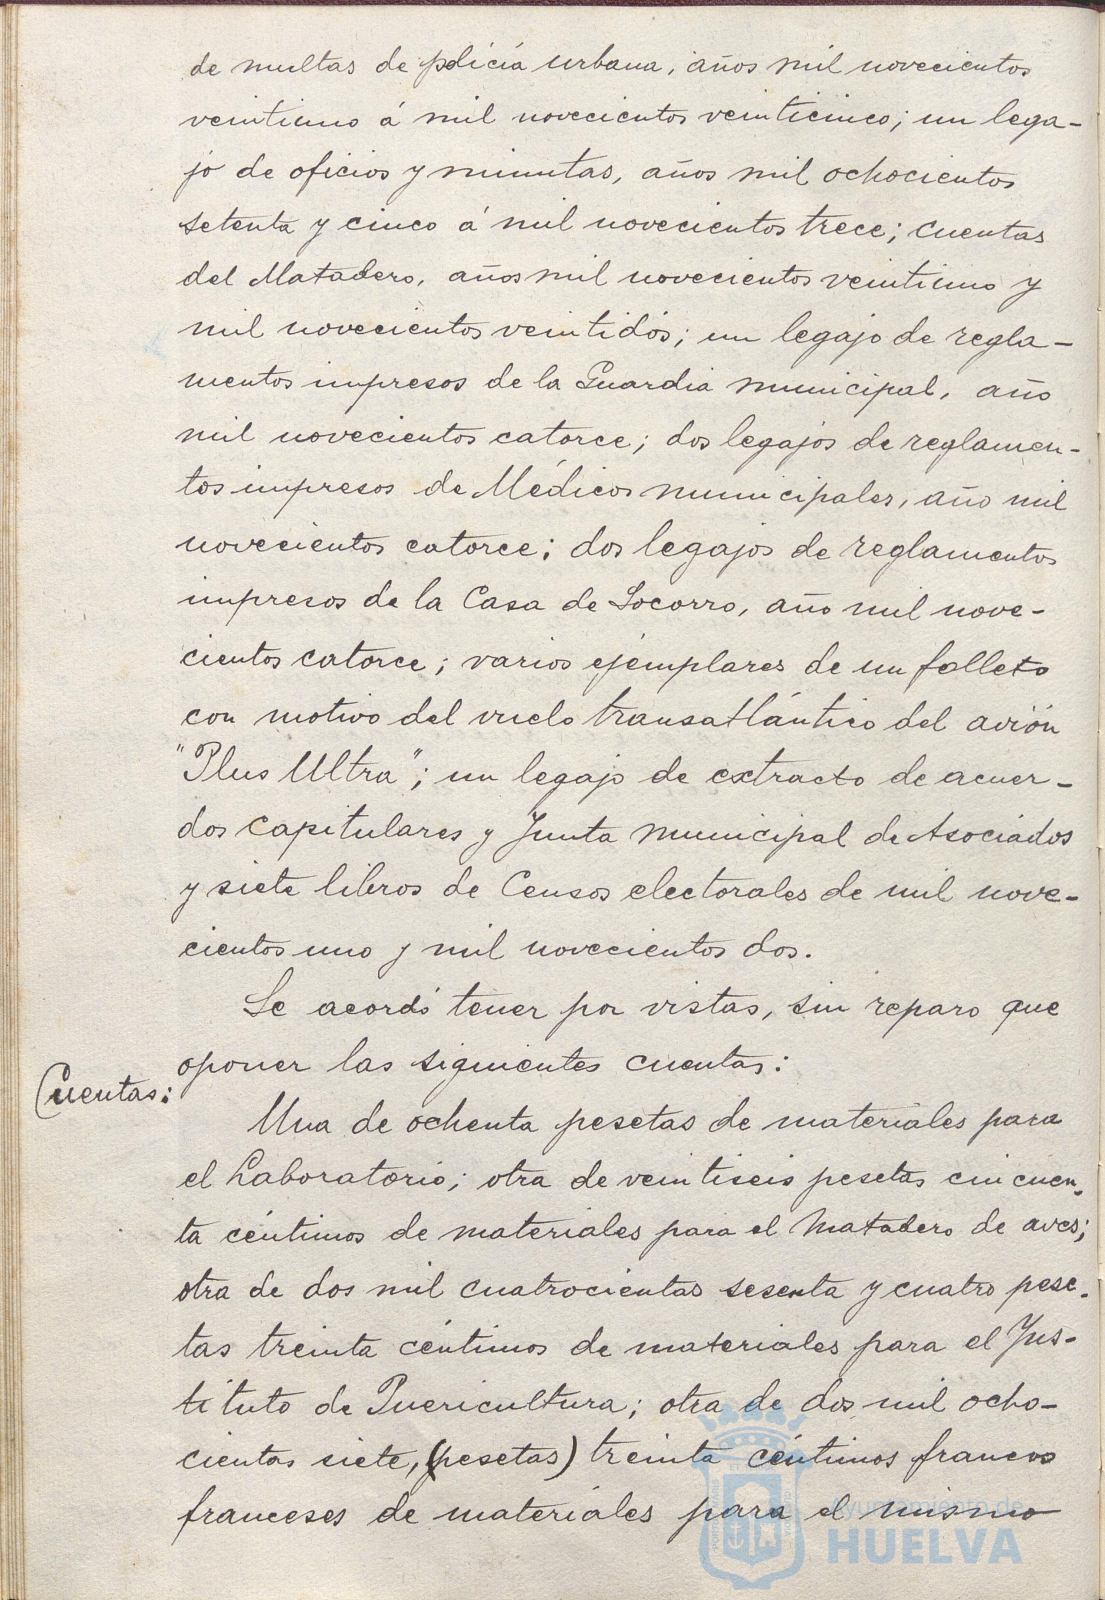 de multas de policía urbana, años mil novecientos
veintiuno á mil novecientos veinticinco; un lega-
jo de oficios y minutas, años mil ochocientos
setenta y cinco á mil novecientos trece; cuentas
del Matadero, años mil novecientos veintiuno y
mil novecientos veintidós; un legajo de regla-
mentos impresos de la Guardia municipal, año
mil novecientos catorce; dos legajos de reglamen-
tos impresos de Médicos municipales, año mil
novecientos catorce; dos legajos de reglamentos
impresos de la Casa de Socorro, año mil nove-
cientos catorce; varios ejemplares de un folleto
con motivo del vuelo transatlántico del avión
"Plus Ultra"; un legajo de extracto de acuer-
dos capitulares y Junta municipal de Asociados
y siete libros de Censos electorales de mil nove-
cientos uno y mil novecientos dos.
Se acordó tener por vistas, sin reparo que
oponer las siguientes cuentas:
Cuentas:
Una de ochenta pesetas de materiales para
el Laboratorio; otra de veintiseis pesetas cincuen-
ta céntimos de materiales para el Matadero de aves;
otra de dos mil cuatrocientas sesenta y cuatro pese-
tas treinta céntimos de materiales para el Ins-
tituto de Puericultura; otra de dos mil ocho-
cientos siete, (pesetas) treinta céntimos francos
franceses de materiales para el mismo
Ayuntamiento de
HUELVA